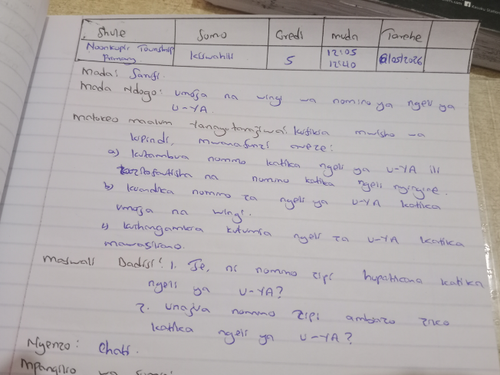 Shule Somo Gredi muda Tarehe
Noonkopir Township Primary Kiswahili 5 12:05 12:40 6/05/2026
Mada: Sarufi.
Mada Ndogo: umoja na wingi wa nomino ya ngeli ya
U-YA
matokeo maalum Yanayotarajiwa: kufikia mwisho wa
kipindi, mwanafunzi aweze:
a) kutambua nomino katika ngeli ya U-YA ili
kuzitofautisha na nomino katika ngeli nyingine.
b) kuandika nomino za ngeli ya U-YA katika
umoja na wingi.
c) kuchangamkia kutumia ngeli za U-YA katika
mawasiliano.
maswali Dadisi: 1. Je, ni nomino zipi hupatikana katika
ngeli ya U-YA?
2. unajua nomino zipi ambazo ziko
katika ngeli ya U-YA?
Nyenzo: Chati.
Mpangilio wa